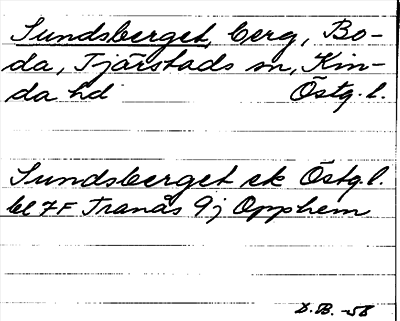 Sundsberget, berg, Bo-
da, Tjärstads sn, Kin-
da hd Östg. l.
Sundsberget ek Östg. l.
bl 7F Tranås 9j Opphem
D. B. -58